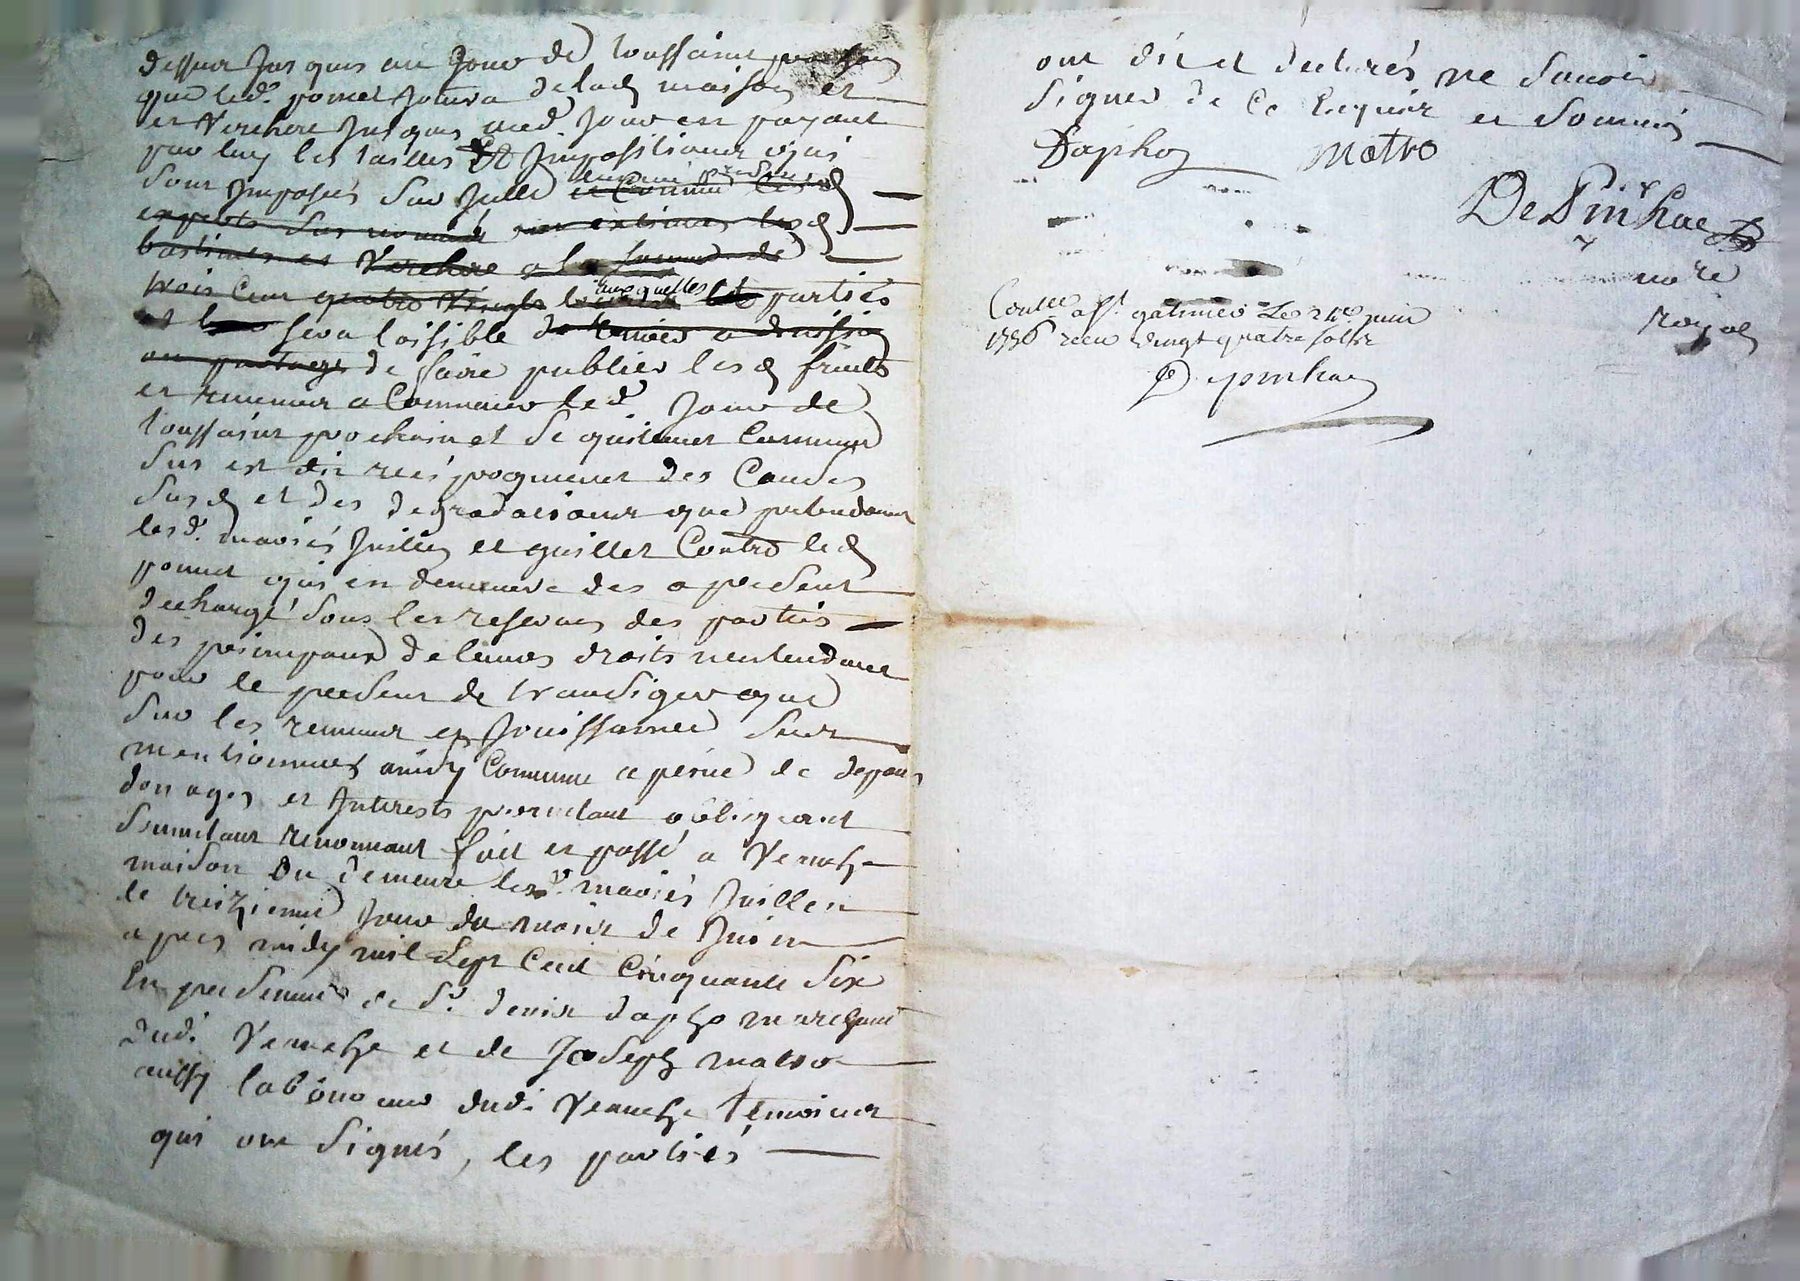 dessus jus ques au jour de toussaint prochain
que led. ponet jouira de lad maison et
et verchere jusques aud. jour en payant
par luy les tailles et impositions qui
sont imposés sur icelle
verchere a la somme de
trois cent quatre vingt auxquelles parties
sera loisible
de faire publier lesd fruits
et revenus a commancer led jour de
toussaint prochain et se quittent comme
dus est dit reciproquement des causes
susd et des degradations que pretendoient
lesd. mariés juillen et guillet contre led
ponnet qui en demeure des a present
dechargé sous les reserves des parties
des principaux de leurs droits nentendant
pour le present de transiger que
sur les revenus et jouissances sus
mentionnés ainsy convenu a peine de depens
domages et interests promettant obligeant
soumetant renonceant fait et passé a veauche
maison ou demeure lesd. mariés juillen
le treizieme jour du mois de juin
apres midy mil sept cent cinquante six
en presence de sr. denis dapho marchant
dud. veauche et de joseph matro
aussy laboureur dud. veauche temoins
qui ont signés, les parties
ont dit et declarés ne scavoir
signer de ce enquis et sommés
Dapho matro
De Pinhac
no re
royal
Contlé a St. galmier le 24e juin
1756 recu vingt quatre sols
Depinhac